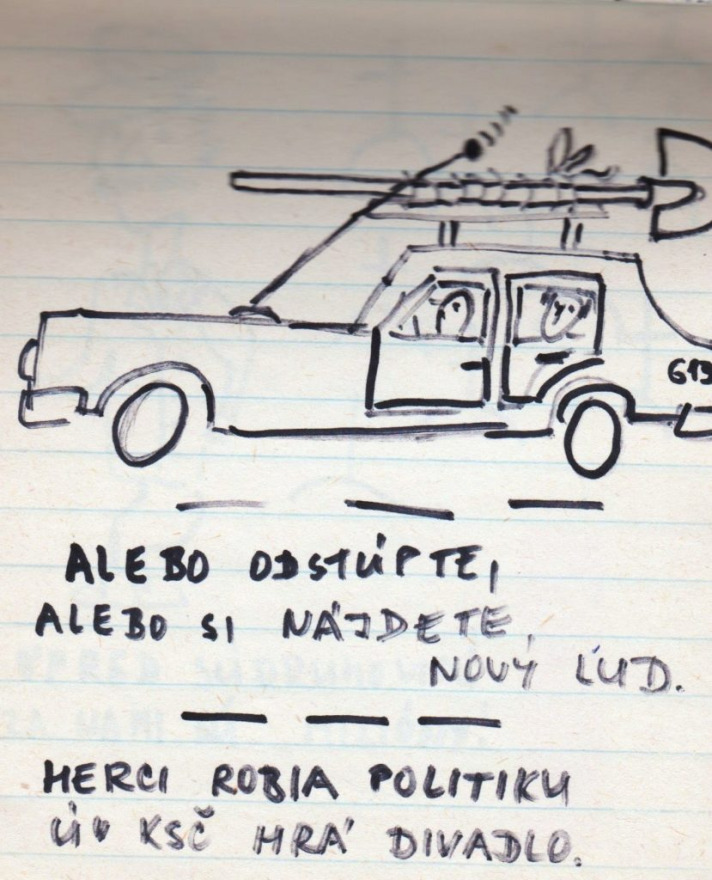 613
ALEBO ODSTÚPTE,
ALEBO SI NÁJDETE
NOVÝ ĽUD.
HERCI ROBIA POLITIKU
ÚV KSČ HRÁ DIVADLO.